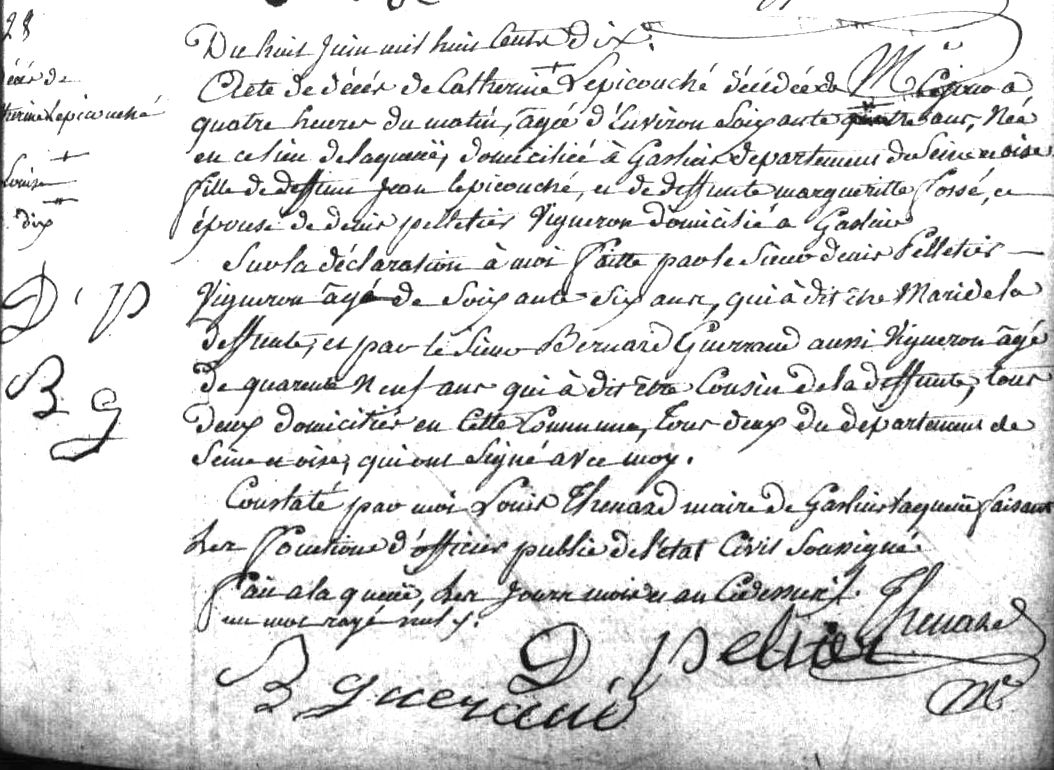 28
Décès de
Catherine Lepicouché
Louise
dix
D P
B G
Du huit Juin mil huit Cents dix.
Acte de décés de Catherine Lepicouché décédée de ce jour a
quatre heures du matin, agée d'Environ Soixante ans, Née
en ce lieu delaqueuë, domiciliée à Garlnis departement de Seine et oise
fille de deffunt Jean lepicouché, et de deffunte margueritte fossé, et
épouse de denis pelletier Vigneron domicilié a
Sur la déclaration à moi faitte par le Sieur denis Pelletier
Vigneron agé de Soixante Six ans, qui à dit être Mari de la
deffunte, et par le Sieur Bernard Guerrand aussi Vigneron agé
de quarente Neuf ans qui à dit être Cousin de la deffunte, tous
deux domiciliés en Cette Commune, tous deux du département de
Seine et oise, qui ont Signé avec moy.
Constaté par moi Louis Thenard maire de laqueuë faisant
Les fonctions d'officier public de l'état Civil Soussigné
fait a la queuë, Les Jour mois et an Cidessus
un mot rayé nul.
Thenard
D Peltier
B gueraind
Mre